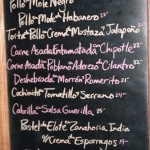 Pollo Mole Negro
Pollo Mole Habanero 22-
Torta Pollo Crema Mostaza Jalapeño
Carne Asada Entomatada Chipotle 22-
Carne Asada Poblano Adobo Cilantro
Deshebrada Morrón Romerito 21-
Cochinito Tomatillo Serrano 24-
Cabrilla Salsa Guerilla
Pastel de Elote Zanahoria India
y Crema Esparragos